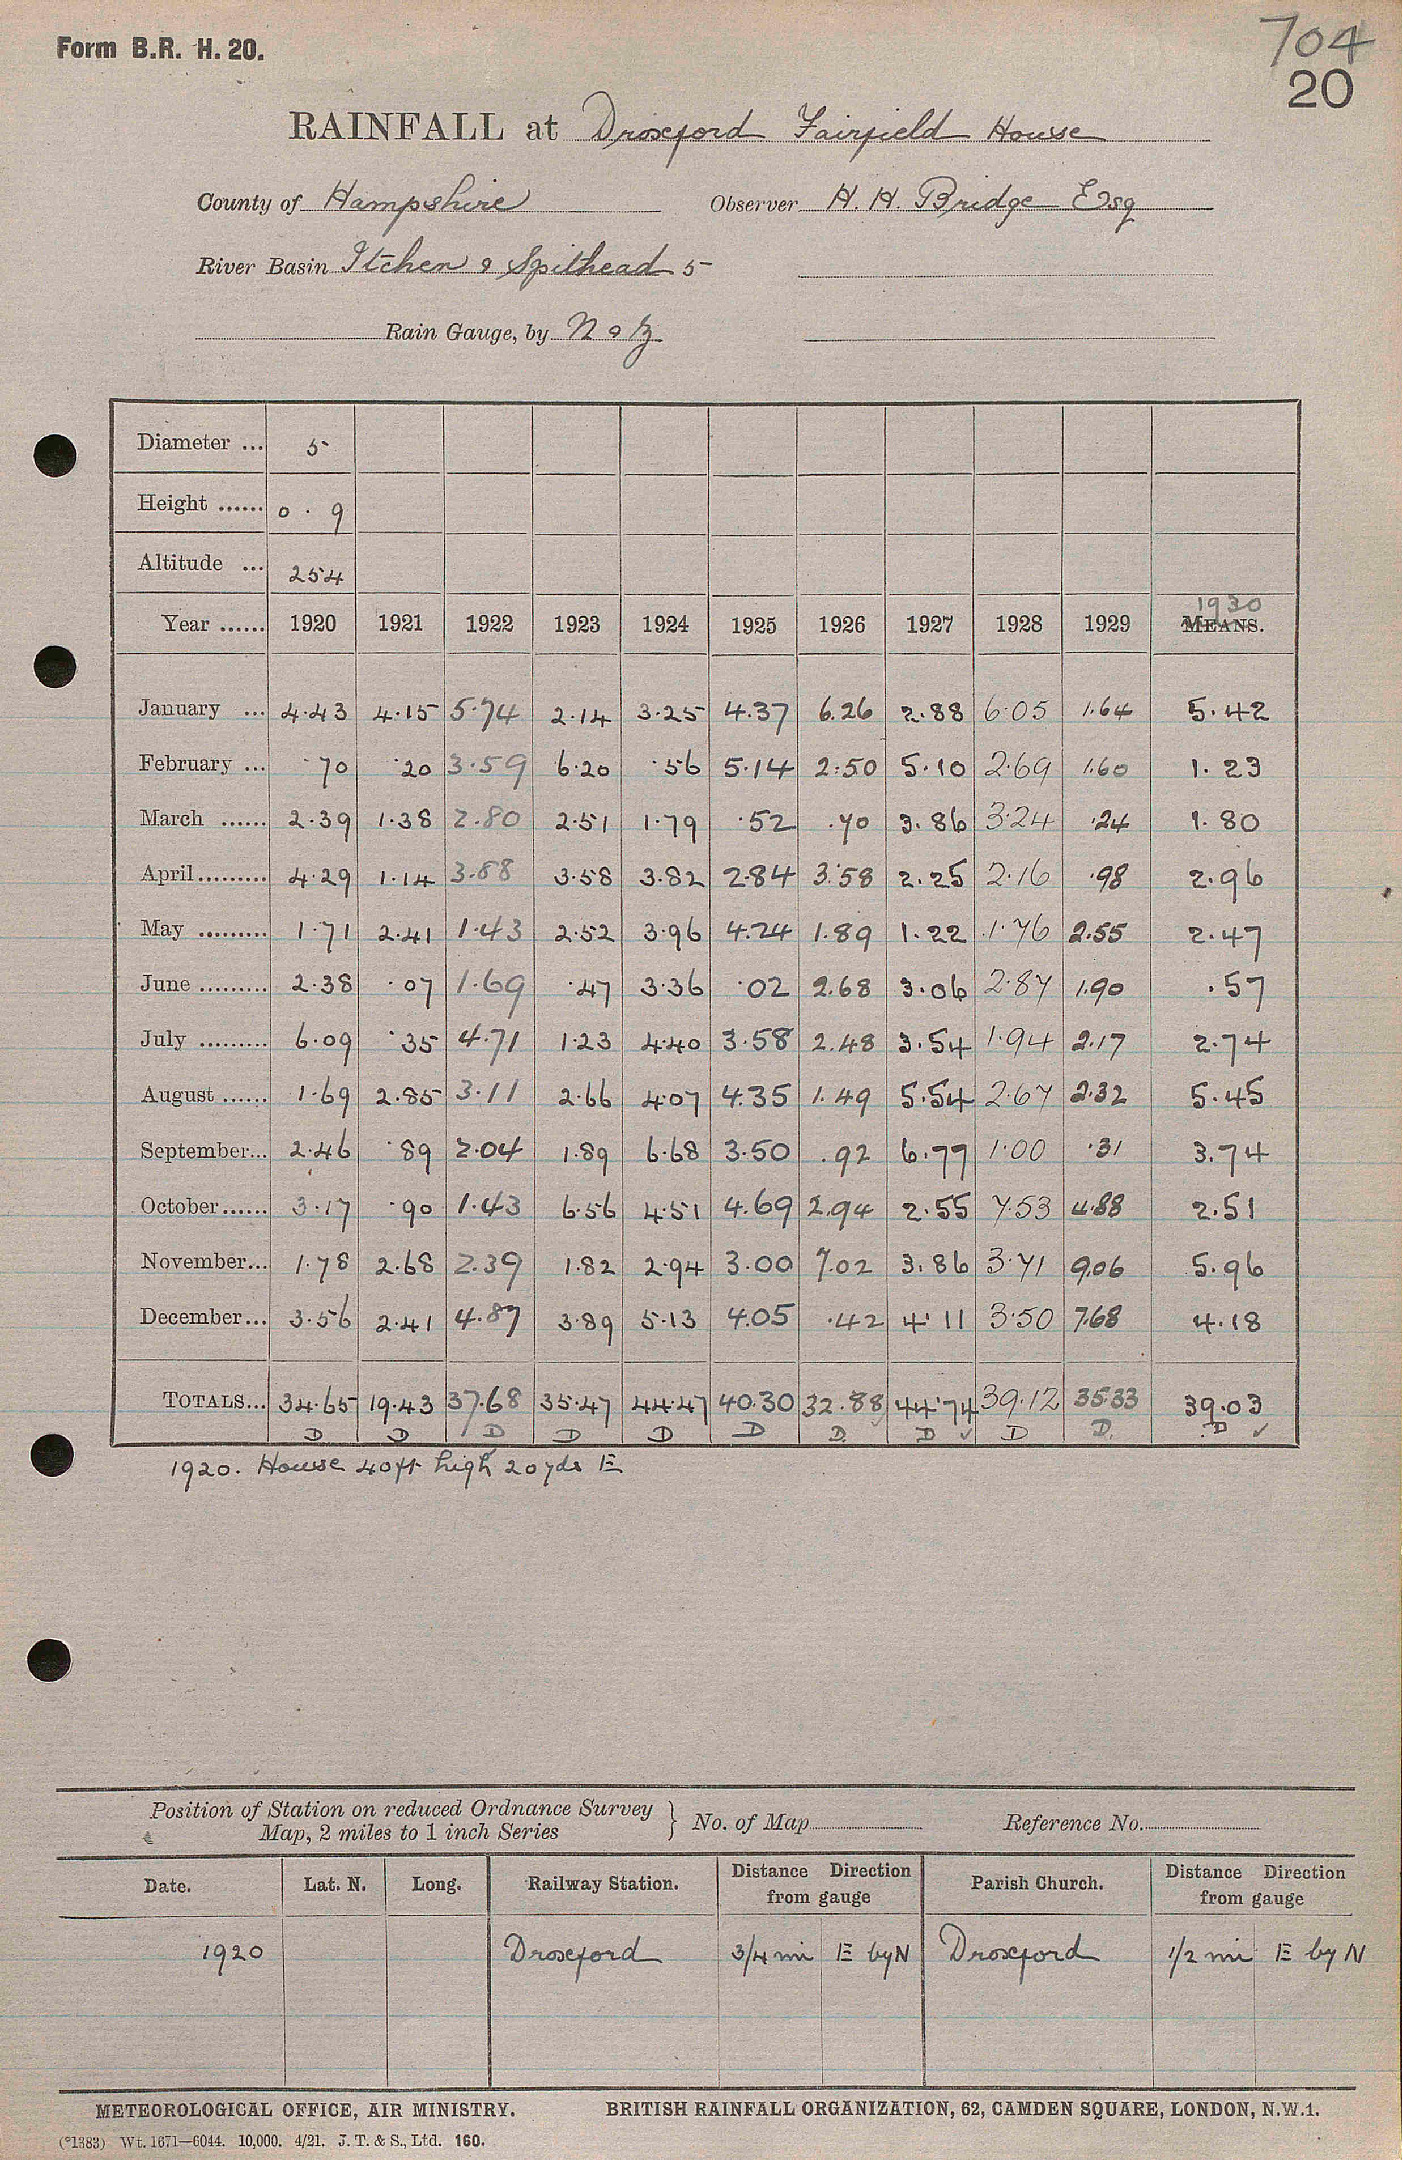 Form B.R. H. 20.
704
20
RAINFALL at Droxford Fairfield House
County of Hampshire Observer H. H. Bridge Esq
River Basin Itchen & Spithead 5
Rain Gauge, by N & Z
Diameter ... 5
Height ...... 0 . 9
Altitude ... 254
1930
Year ...... 1920 1921 1922 1923 1924 1925 1926 1927 1928 1929 MEANS.
January ... 4.43 4.15 5.74 2.14 3.25 4.37 6.26 2.88 6.05 1.64 5.42
February ... .70 .20 3.59 6.20 .56 5.14 2.50 5.10 2.69 1.60 1.23
March ...... 2.39 1.38 2.80 2.51 1.79 .52 .70 3.86 3.24 .24 1.80
April......... 4.29 1.14 3.88 3.58 3.82 2.84 3.58 2.25 2.16 .98 2.96
May ......... 1.71 2.41 1.43 2.52 3.96 4.24 1.89 1.22 1.76 2.55 2.47
June ......... 2.38 .07 1.69 .47 3.36 .02 2.68 3.06 2.87 1.90 .57
July ......... 6.09 .35 4.71 1.23 4.40 3.58 2.48 3.54 1.94 2.17 2.74
August ...... 1.69 2.85 3.11 2.66 4.07 4.35 1.49 5.54 2.67 2.32 5.45
September... 2.46 .89 2.04 1.89 6.68 3.50 .92 6.77 1.00 .31 3.74
October...... 3.17 .90 1.43 6.56 4.51 4.69 2.94 2.55 7.53 4.88 2.51
November... 1.78 2.68 2.39 1.82 2.94 3.00 7.02 3.86 3.71 9.06 5.96
December... 3.56 2.41 4.87 3.89 5.13 4.05 .42 4.11 3.50 7.68 4.18
TOTALS... 34.65 19.43 37.68 35.47 44.47 40.30 32.88 44.74 39.12 35.33 39.03
D D D D D D D. D ✓ D D. D ✓
1920. House 40ft high 20yds E
Position of Station on reduced Ordnance Survey
Map, 2 miles to 1 inch Series } No. of Map Reference No.
Date. Lat. N. Long. Railway Station. Distance Direction from gauge Parish Church. Distance Direction from gauge
1920 Droxford 3/4 mi E by N Droxford 1/2 mi E by N
METEOROLOGICAL OFFICE, AIR MINISTRY. BRITISH RAINFALL ORGANIZATION, 62, CAMDEN SQUARE, LONDON, N.W.1.
(*1383) Wt. 1671—6044. 10,000. 4/21. J. T. & S., Ltd. 160.